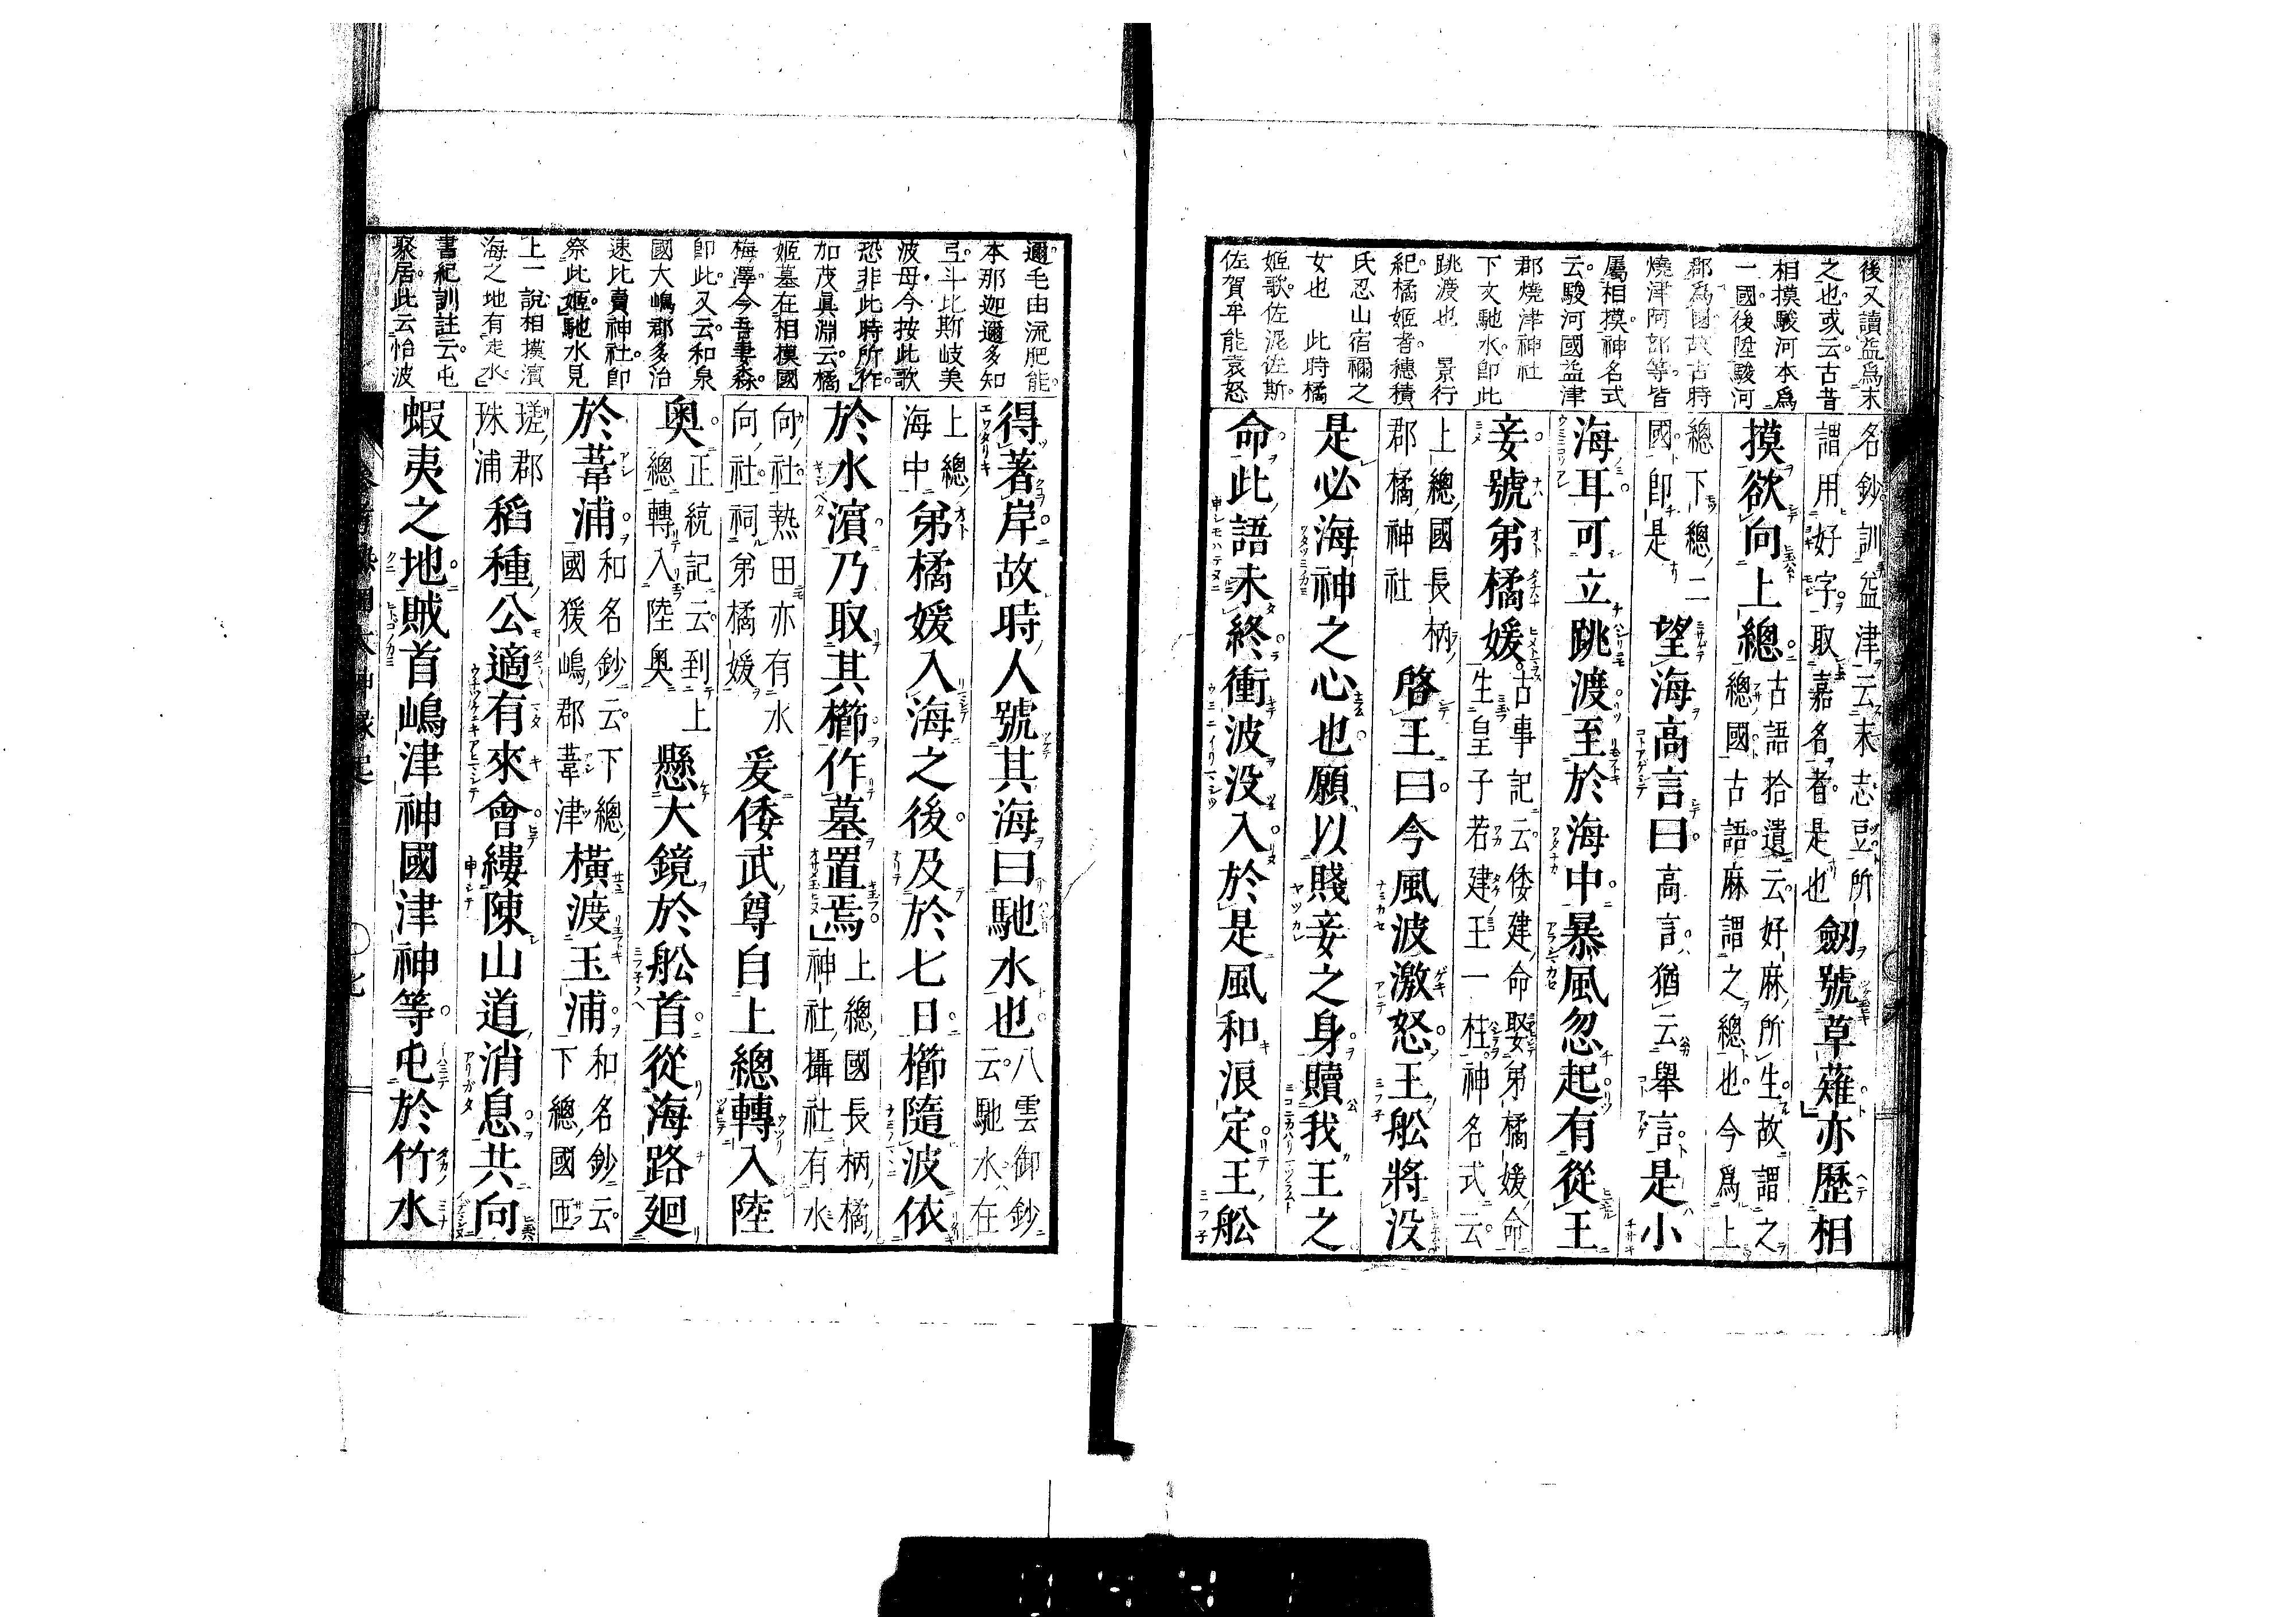 後又讀益爲末
之也或云古昔
相摸駿河本爲
一國後陞駿河
郡爲國故古時
燒津阿部等皆
屬相摸神名式
云駿河國益津
郡燒津神社
下文馳水卽此
跳渡也 景行
紀橘姬者穗積
氏忍山宿禰之
女也 此時橘
姬歌佐泥佐斯
佐賀牟能袁怒
名鈔訓益津云末志豆所
謂用好字取嘉名者是也
劔號草薙亦歷相
摸欲向上總
古語拾遺云好麻所生故謂之
總國古語麻謂之總也今爲上
總下總二
國卽是
望海高言曰高言猶云舉言是小
海耳可立跳渡至於海中暴風忽起有從王
妾號弟橘媛
古事記云倭建命娶弟橘媛命
生皇子若建王一柱神名式云
上總國長柄
郡橘神社
啓王曰今風波激怒王舩將没
是必海神之心也願以賤妾之身贖我王之
命此語未終衝波没入於是風和浪定王舩
邇毛由流肥能
本那迦邇多知
弖斗比斯岐美
波母今按此歌
恐非此時所作
加茂眞淵云橘
姬墓在相摸國
梅澤今吾妻森
卽此又云和泉
國大嶋郡多治
速比賣神社卽
祭此姬馳水見
上一說相摸濱
海之地有走水
書紀訓註云屯
聚居此云怡波
得著岸故時人號其海曰馳水也
八雲御鈔
云馳水在
上總
海中
弟橘媛入海之後及於七日櫛隨波依
於水濵乃取其櫛作墓置焉
上總國長柄橘
神社攝社有水
向社熱田亦有水
向社祠弟橘媛
爰倭武尊自上總轉入陸
奥
正統記云到上
總轉入陸奥
懸大鏡於舩首從海路廻
於葦浦
和名鈔云下總
國猨嶋郡葦津
橫渡玉浦
和名鈔云
下總國匝
瑳郡
珠浦
稻種公適有來會縷陳山道消息共向
蝦夷之地賊首嶋津神國津神等屯於竹水